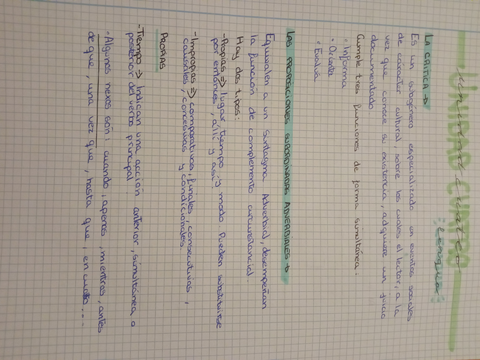 UNIDAD CUATRO
LENGUA
LA CRÍTICA →
Es un subgénero especializado en eventos sociales
de carácter cultural, sobre los cuales el lector, a la
vez que conoce su existencia, adquiere un juicio
documentado
Cumple tres funciones de forma simultánea:
· Informa
· Orienta
· Evalúa
LAS PROPOSICIONES SUBORDINADAS ADVERBIALES →
Equivalen a un Sintagma Adverbial, desempeñan
la función de complemento circunstancial
Hay dos tipos:
- Propias => lugar, tiempo y modo Pueden substituirse
por entonces, allí y así
- Impropias => comparativas, finales, consecutivas,
causales, concesivas y condicionales
PROPIAS
- Tiempo => Indican una acción anterior, simultánea o
posterior del verbo principal
- Algunos nexos son: cuando, apenas, mientras, antes
de que, una vez que, hasta que, en cuanto...